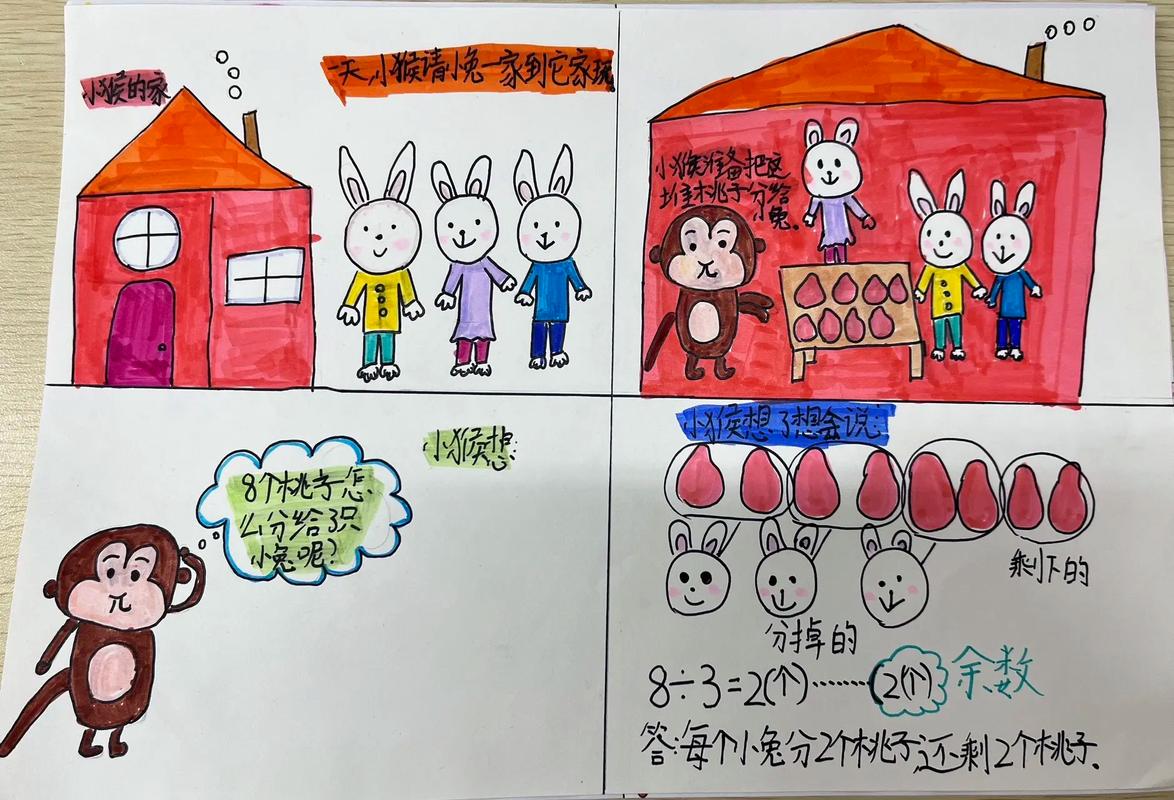 小猴的家
一天,小猴请小兔一家到它家玩
小猴准备把这
堆桃子分给
小兔。
小猴想:
8个桃子怎
么分给3只
小兔呢?
小猴想了想会说:
剩下的
分掉的
8÷3=2(个)……2(个) 余数
答:每个小兔分2个桃子还剩2个桃子.